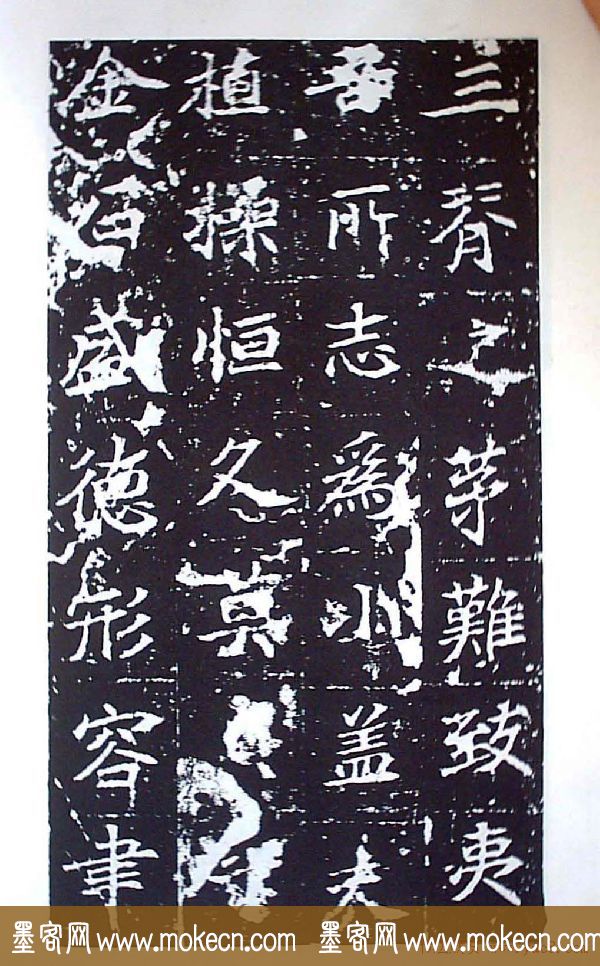 三脊之茅難致夷
吾所志為小盖
植操恒久
金石盛德形容聿
墨客网 www.mokecn.com 墨客网 www.mokecn.com